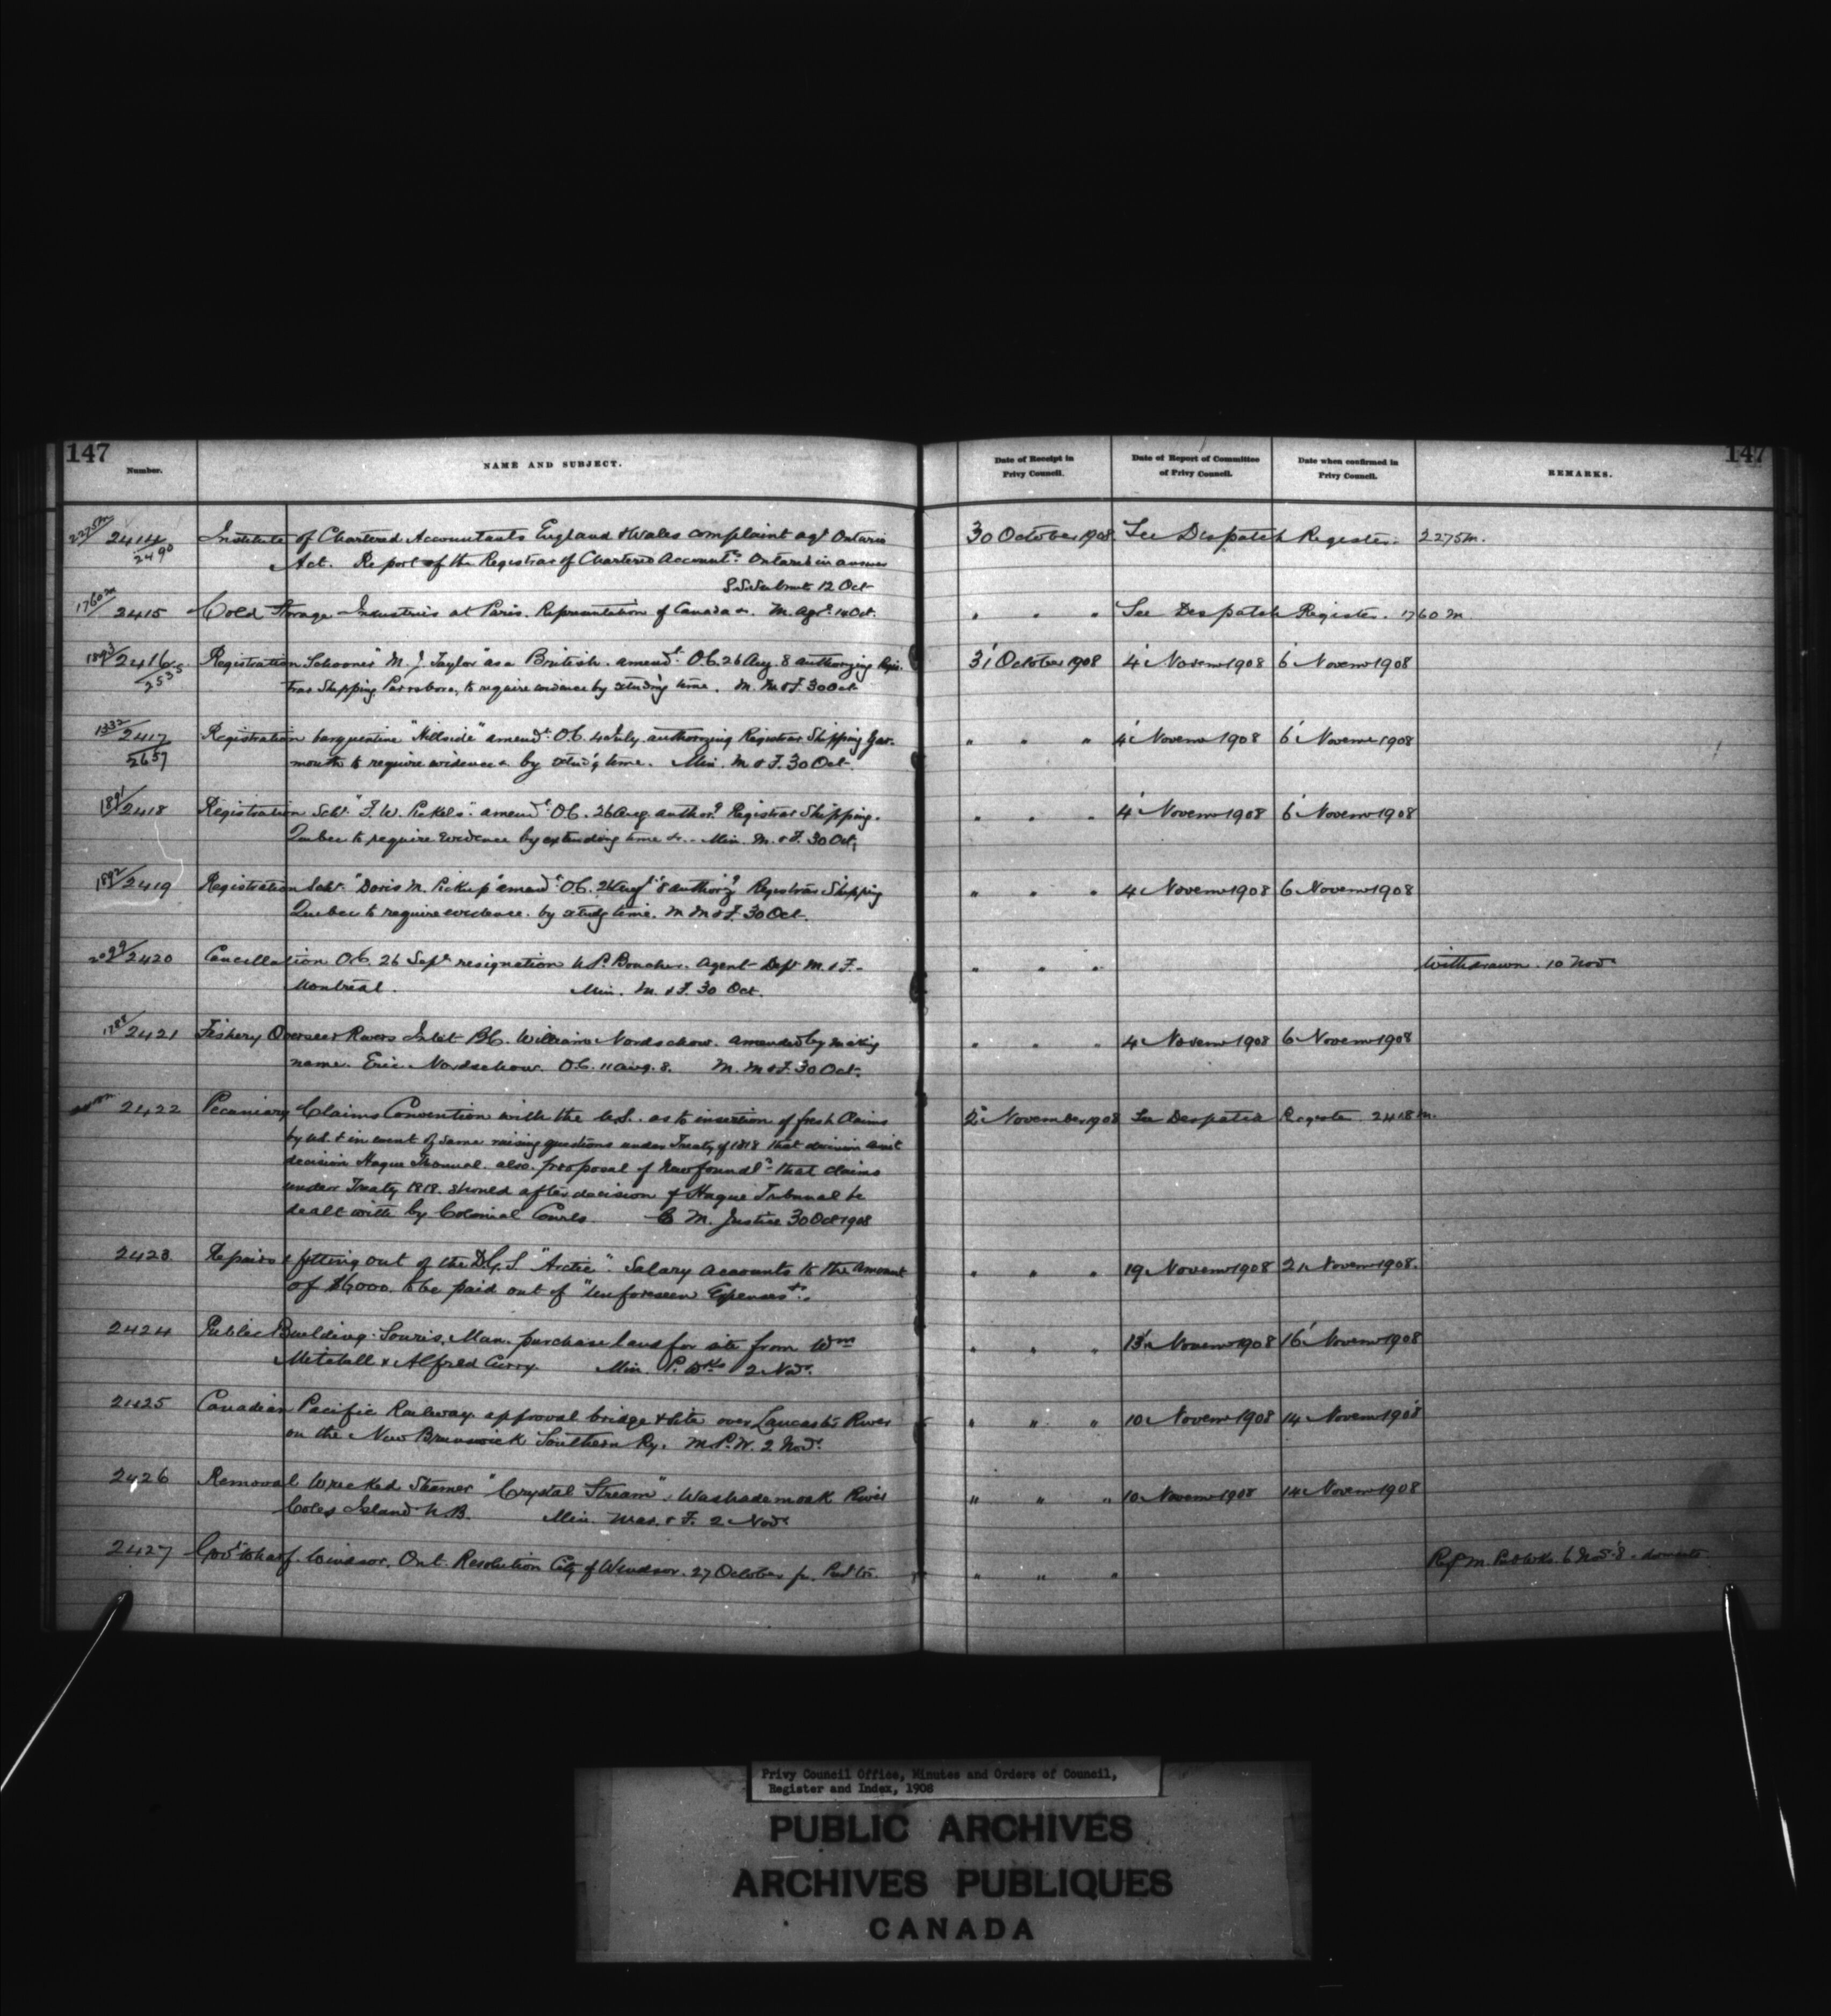 147
147
Number.
NAME AND SUBJECT.
Date of Receipt in
Privy Council.
Date of Report of Committee
of Privy Council.
Date when confirmed in
Privy Council.
REMARKS.
2275M/2414 Institute of Chartered Accountants England & Wales complaint agt Ontario 30 October 1908 See Despatch Register. 2275M.
2490 Act. Report of the Registrar of Chartered Accountts Ontario in answer
12 Oct
1760M/2415 Cold Storage Industries at Paris. Representation of Canada &. M. Agr. 14 Oct. " " " See Despatch Register. 1760 M.
1893/2416 Registration Schooner "M. J. Taylor" as a British. amendt O.C. 26 Aug. 8 authorizing Regis- 31 October 1908 4 Novemr 1908 6 Novemr 1908
2535 trar Shipping Parrsboro, to require evidence by extending time. M. M & F. 30 Oct
1332/2417 Registration barquentine "Hillside" amendt O.C. 4 July authorizing Registrar Shipping Yar- " " " 4 Novemr 1908 6 Novemr 1908
2657 mouth to require evidence & by extendg time. Min. M & F. 30 Oct.
1891/2418 Registration Schr. "F. W. Pickels" amendt O.C. 26 Aug. authorg Registrar Shipping. " " " 4 Novemr 1908 6 Novemr 1908
Quebec to require evidence by extending time &. Min. M. & F. 30 Oct.
1892/2419 Registration Schr. "Doris M. Pickup" amendt O.C. 26 Augt 8 authorizg Registrar Shipping " " " 4 Novemr 1908 6 Novemr 1908
Quebec to require evidence. by extendg time. M M & F. 30 Oct.
2099/2420 Cancellation O.C. 26 Sept resignation U. P. Boucher. Agent Dept M. & F. " " " Withdrawn. 10 Novr
Montreal. Min. M. & F. 30 Oct.
2421 Fishery Overseer Rivers Inlet B.C. William Nordschow. amended by making " " " 4 Novemr 1908 6 Novemr 1908
name. Eric Nordschow. O.C. 11 Aug. 8. M. M & F. 30 Oct.
2422 Pecuniary Claims Convention with the U.S. as to insertion of fresh Claims 2 November 1908 See Despatch Register 2418 M.
by U.S. & in event of same raising questions under Treaty of 1818 that decision await
decision Hague Tribunal. also. proposal of Newfoundld that claims
under Treaty 1818. should after decision of Hague Tribunal be
dealt with by Colonial Courts. M. Justice 30 Oct 1908
2423. Repairs & fitting out of the D.G.S "Arctic". Salary accounts to the amount " " " 19 Novemr 1908 21 Novemr 1908.
of $6000. to be paid out of "Unforeseen Expenses".
2424 Public Building. Souris, Man. purchase land for site from Wm " " " 13 Novemr 1908 16 Novemr 1908
Mitchell & Alfred Curry. Min. P. Wks 2 Novr.
2425 Canadian Pacific Railway. approval bridge & site over Lancaster River " " " 10 Novemr 1908 14 Novemr 1908
on the New Brunswick Southern Ry. M.P.W. 2 Novr.
2426 Removal Wrecked Steamer "Crystal Stream", Washademoak River " " " 10 Novemr 1908 14 Novemr 1908
Coles Island N.B. Min. Mar. & F. 2 Novr
2427 Govt Wharf. Windsor, Ont. Resolution City of Windsor. 27 October " " " Ref M. Pub Wks. 6 Nov. 8.
Privy Council Office, Minutes and Orders of Council,
Register and Index, 1908
PUBLIC ARCHIVES
ARCHIVES PUBLIQUES
CANADA